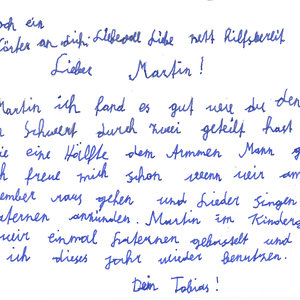 och ein
örter an dich: Liebevoll Liebe nett Hilfsbereit
Lieber Martin!
Martin ich fand es gut wie du den
n Schwert durch zwei geteilt hast
ie eine Hälfte dem Armmen Mann g
ch freue mich schon wenn wir am
ember raus gehen und Lieder singen
aternen anzünden. Martin im Kinderg
wir einmal Laternen gebastelt und
ich dieses jahr wieder benutzen.
Dein Tobias!